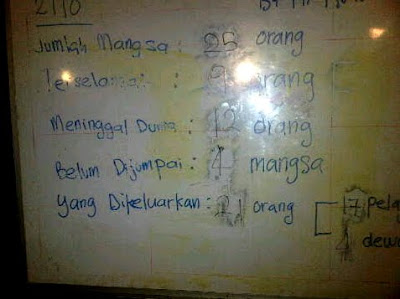 2110
Jumlah Mangsa : 25 orang
Terselamat : 9 orang
Meninggal Dunia : 12 orang
Belum Dijumpai : 4 mangsa
Yang Dikeluarkan : 21 orang
17 pela
4 dewa